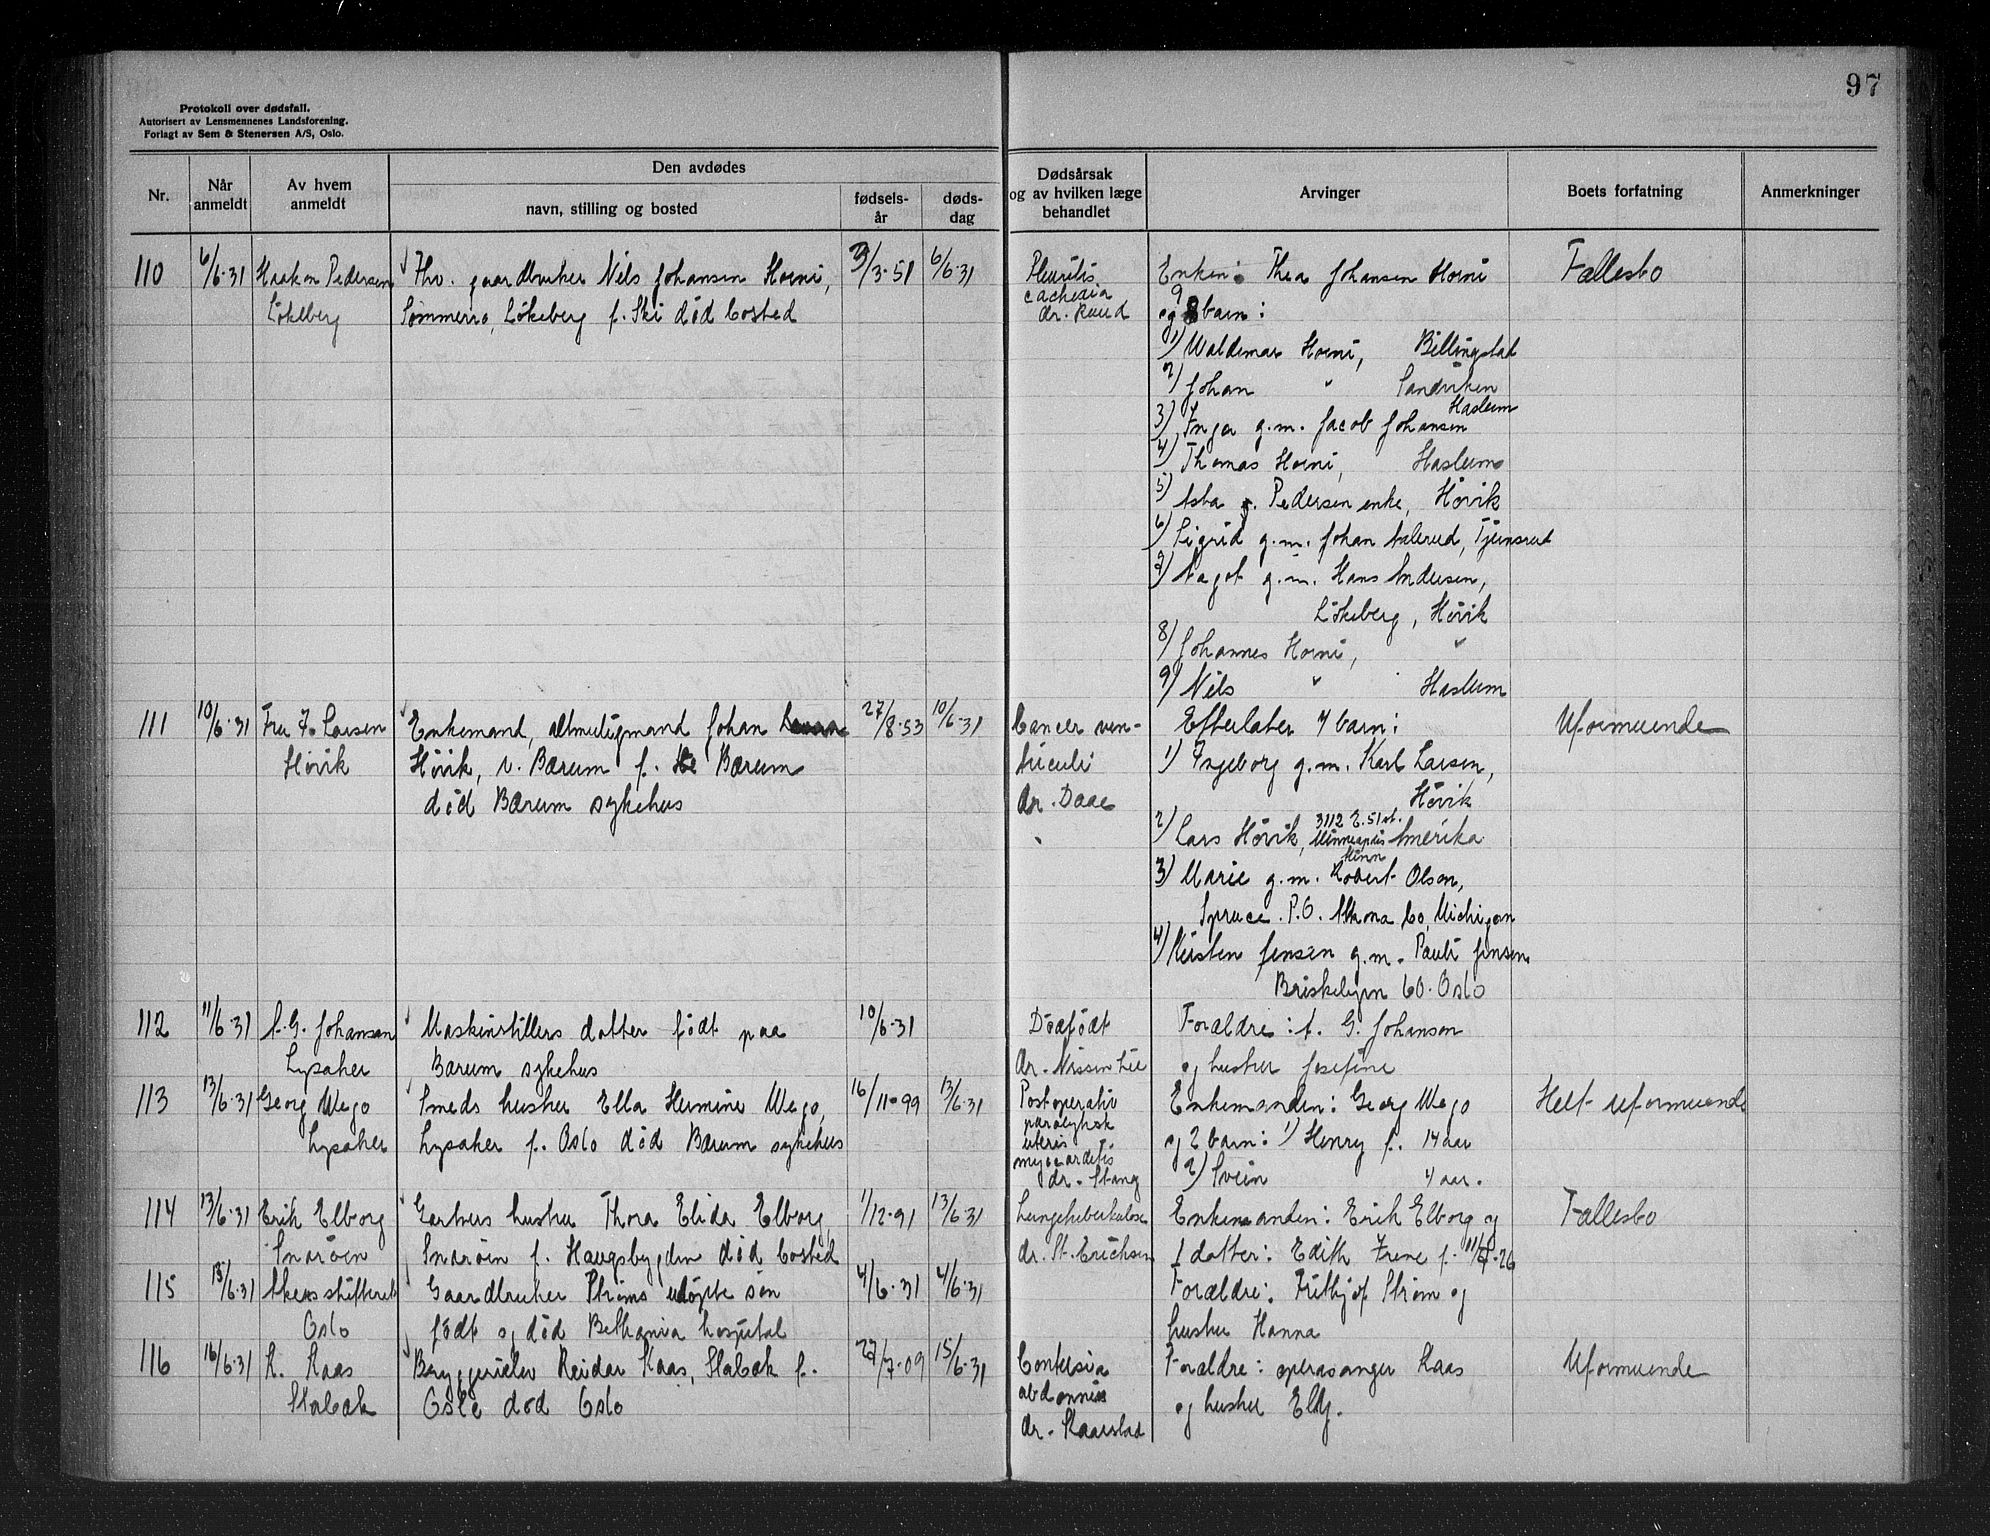 97
Protokoll over dødsfall.
Autorisert av Lensmennenes Landsforening.
Forlagt av Sem & Stenersen A/S, Oslo.
Nr.
Når anmeldt
Av hvem anmeldt
Den avdødes
navn, stilling og bosted
fødsels-år
døds-dag
Dødsårsak og av hvilken læge behandlet
Arvinger
Boets forfatning
Anmerkninger
110 6/6-31 Haakon Pedersen Fhv. gaardbruker Nils Johansen Horni, /3-51 6/6-31
Løkeberg Sommerro, Løkeberg f. Ski død bosted
Pleuritis
cachexia
dr. Ruud
Enken: Thea Johansen Horni
og 9 barn:
1) Waldemar Horni, Billingstad
2) Johan " Sandviken
3) Inga g.m. Jacob Johansen Haslum
4) Thomas Horni, Haslum
5) Asta Pedersen enke, Høvik
6) Sigrid g.m. Johan Aalerud, Tjernsrud
7) Nagot g.m. Hans Andersen,
Løkeberg, Høvik
8) Johannes Horni, "
9) Nils " Haslum
Fællesbo
111 10/6-31 Fru I. Larsen Enkemand, altmuligmand Johan 27/8-53 10/6-31
Høvik Høvik, v. Bærum f. Bærum
død Bærum sykehus
Cancer ven-
triculi
dr. Daae
Efterlater 4 barn:
1) Ingeborg g.m. Karl Larsen,
Høvik
2) Lars Høvik, 3112 E. 51 st. Minneapolis Minn Amerika
3) Marie g.m. Robert Olson,
Spruce. P.O. Alkona Co, Michigan
4) Kirsten Jensen g.m. Pauli Jensen
Briskebyvn 60. Oslo
Uformuende
112 11/6-31 A. G. Johansen Maskinstillers datter født paa 10/6-31
Lysaker Bærum sykehus
Dødfødt
dr. Nissen Lie
Forældre: A. G. Johanson
og hustru Josefine
113 13/6-31 Georg Wego Smeds hustru Ella Hermine Wego, 16/11-99 13/6-31
Lysaker Lysaker f. Oslo død Bærum sykehus
Postoperativ
paralytisk
myocarditis
dr. Stang
Enkemanden: Georg Wego
og 2 barn: 1) Henry f. 14 aar
2) Svein 4 aar.
Helt uformuende
114 13/6-31 Erik Elborg Gartners hustru Thora Elida Elborg 1/12-91 13/6-31
Snarøen Snarøen f. Haugsbygden død bosted
Lungetuberkulose
dr. St. Erichsen
Enkemanden: Erik Elborg og
1 datter: Edith Irene f. 11/-26
Fællesbo
115 15/6-31 Akersskifteret Gaardbruker Strøms udøpte søn 4/6-31 4/6-31
Oslo født og død Bethania hospital
Forældre: Fritjof Strøm og
hustru Hanna
116 16/6-31 R. Kaas Bryggerielev Reidar Kaas, Stabæk f. 27/7-09 15/6-31
Stabæk Oslo død Oslo
Contusio
abdominis
dr. Kaarstad
Forældre: operasanger Kaas
og hustru Elly.
Uformuende